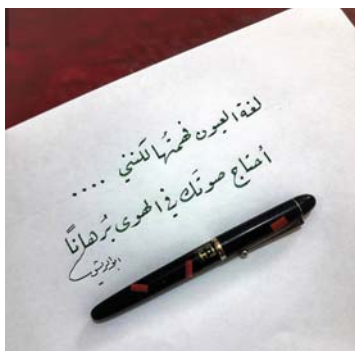 لغة العيون فهمتُها لكنني ....
أحتاج صوتَك في الهوى بُرهانًا